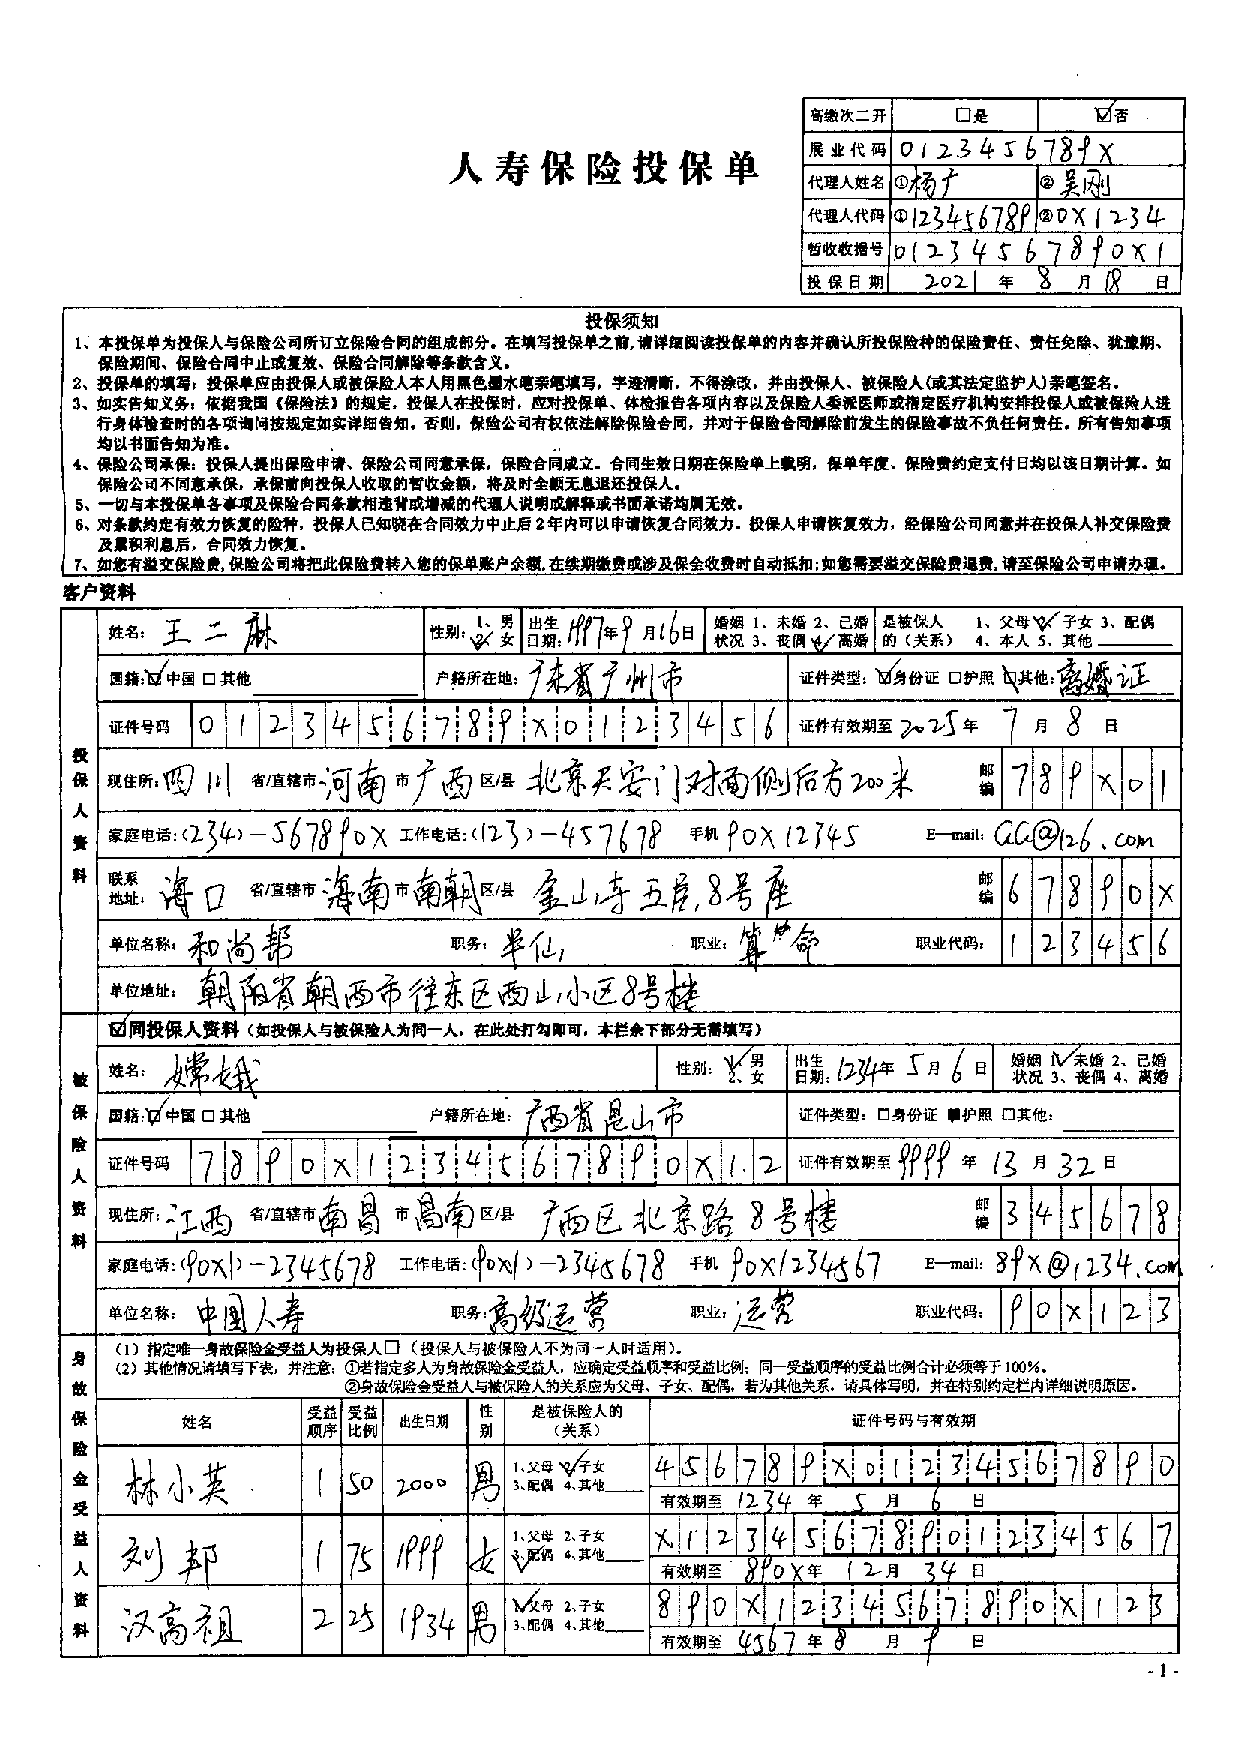 高缴次二开 □是 ☑否
人寿保险投保单
展业代码 0123456789X
代理人姓名 ①杨广 ②吴刚
代理人代码 ①123456789 ②0X1234
暂收收据号 01234567890X1
投保日期 2021 年 8 月 18 日
投保须知
1、本投保单为投保人与保险公司所订立保险合同的组成部分。在填写投保单之前,请详细阅读投保单的内容并确认所投保险种的保险责任、责任免除、犹豫期、
保险期间、保险合同中止或复效、保险合同解除等条款含义。
2、投保单的填写：投保单应由投保人或被保险人本人用黑色墨水笔亲笔填写，字迹清晰，不得涂改，并由投保人、被保险人(或其法定监护人)亲笔签名。
3、如实告知义务：依据我国《保险法》的规定，投保人在投保时，应对投保单、体检报告各项内容以及保险人委派医师或指定医疗机构安排投保人或被保险人进
行身体检查时的各项询问按规定如实详细告知。否则，保险公司有权依法解除保险合同，并对于保险合同解除前发生的保险事故不负任何责任。所有告知事项
均以书面告知为准。
4、保险公司承保：投保人提出保险申请、保险公司同意承保，保险合同成立。合同生效日期在保险单上载明，保单年度、保险费约定支付日均以该日期计算。如
保险公司不同意承保，承保前向投保人收取的暂收金额，将及时全额无息退还投保人。
5、一切与本投保单各事项及保险合同条款相违背或增减的代理人说明或解释或书面承诺均属无效。
6、对条款约定有效力恢复的险种，投保人已知晓在合同效力中止后2年内可以申请恢复合同效力。投保人申请恢复效力，经保险公司同意并在投保人补交保险费
及累积利息后，合同效力恢复。
7、如您有溢交保险费,保险公司将把此保险费转入您的保单账户余额,在续期缴费或涉及保全收费时自动抵扣;如您需要溢交保险费退费,请至保险公司申请办理。
客户资料
投保人资料
姓名: 王二麻 性别: 1、男 2、女 出生日期: 1997年9月16日 婚姻状况 1、未婚 2、已婚 3、丧偶 4、离婚 是被保人的(关系) 1、父母 2、子女 3、配偶 4、本人 5、其他
国籍:☑中国 □其他 户籍所在地: 广东省广州市 证件类型: ☑身份证 □护照 ☑其他: 离婚证
证件号码 0123456789X0123456 证件有效期至 2025年 7 月 8 日
现住所: 四川 省/直辖市 河南 市 广西 区/县 北京天安门对面侧后方200米 邮编 789X01
家庭电话:(234)-567890X 工作电话:(123)-457678 手机 90X12345 E—mail: GG@126.com
联系地址: 海口 省/直辖市 海南 市 南朝 区/县 金山寺五层,8号座 邮编 67890X
单位名称: 和尚帮 职务: 半仙 职业: 算命 职业代码: 123456
单位地址: 朝阳省朝西市往东区西山小区8号楼
被保险人资料
☑同投保人资料（如投保人与被保险人为同一人，在此处打勾即可，本栏余下部分无需填写）
姓名: 嫦娥 性别: 1、男 2、女 出生日期: 1234年5月6日 婚姻状况 1、未婚 2、已婚 3、丧偶 4、离婚
国籍:☑中国 □其他 户籍所在地: 广西省昆山市 证件类型: □身份证 ■护照 □其他:
证件号码 7890X1234567890X1.2 证件有效期至 9999 年 13 月 32 日
现住所: 江西 省/直辖市 南昌 市 昌南 区/县 广西区北京路8号楼 邮编 345678
家庭电话:(90X1)-2345678 工作电话:(90X1)-2345678 手机 90X1234567 E—mail: 89X@1234.com
单位名称: 中国人寿 职务: 高级运营 职业: 运营 职业代码: 90X123
身故保险金受益人资料
(1) 指定唯一身故保险金受益人为投保人□（投保人与被保险人不为同一人时适用）。
(2) 其他情况请填写下表，并注意：①若指定多人为身故保险金受益人，应确定受益顺序和受益比例；同一受益顺序的受益比例合计必须等于100%。
②身故保险金受益人与被保险人的关系应为父母、子女、配偶，若为其他关系，请具体写明，并在特别约定栏内详细说明原因。
姓名 受益顺序 受益比例 出生日期 性别 是被保险人的（关系） 证件号码与有效期
林小英 1 50 2000 男 1、父母 2、子女 3、配偶 4、其他 456789X01234567890
有效期至 1234 年 5 月 6 日
刘邦 1 75 1999 女 1、父母 2、子女 3、配偶 4、其他 X12345678901234567
有效期至 890X年 12月 34 日
汉高祖 2 25 1934 男 1、父母 2、子女 3、配偶 4、其他 890X1234567890X123
有效期至 4567 年 8 月 9 日
- 1 -